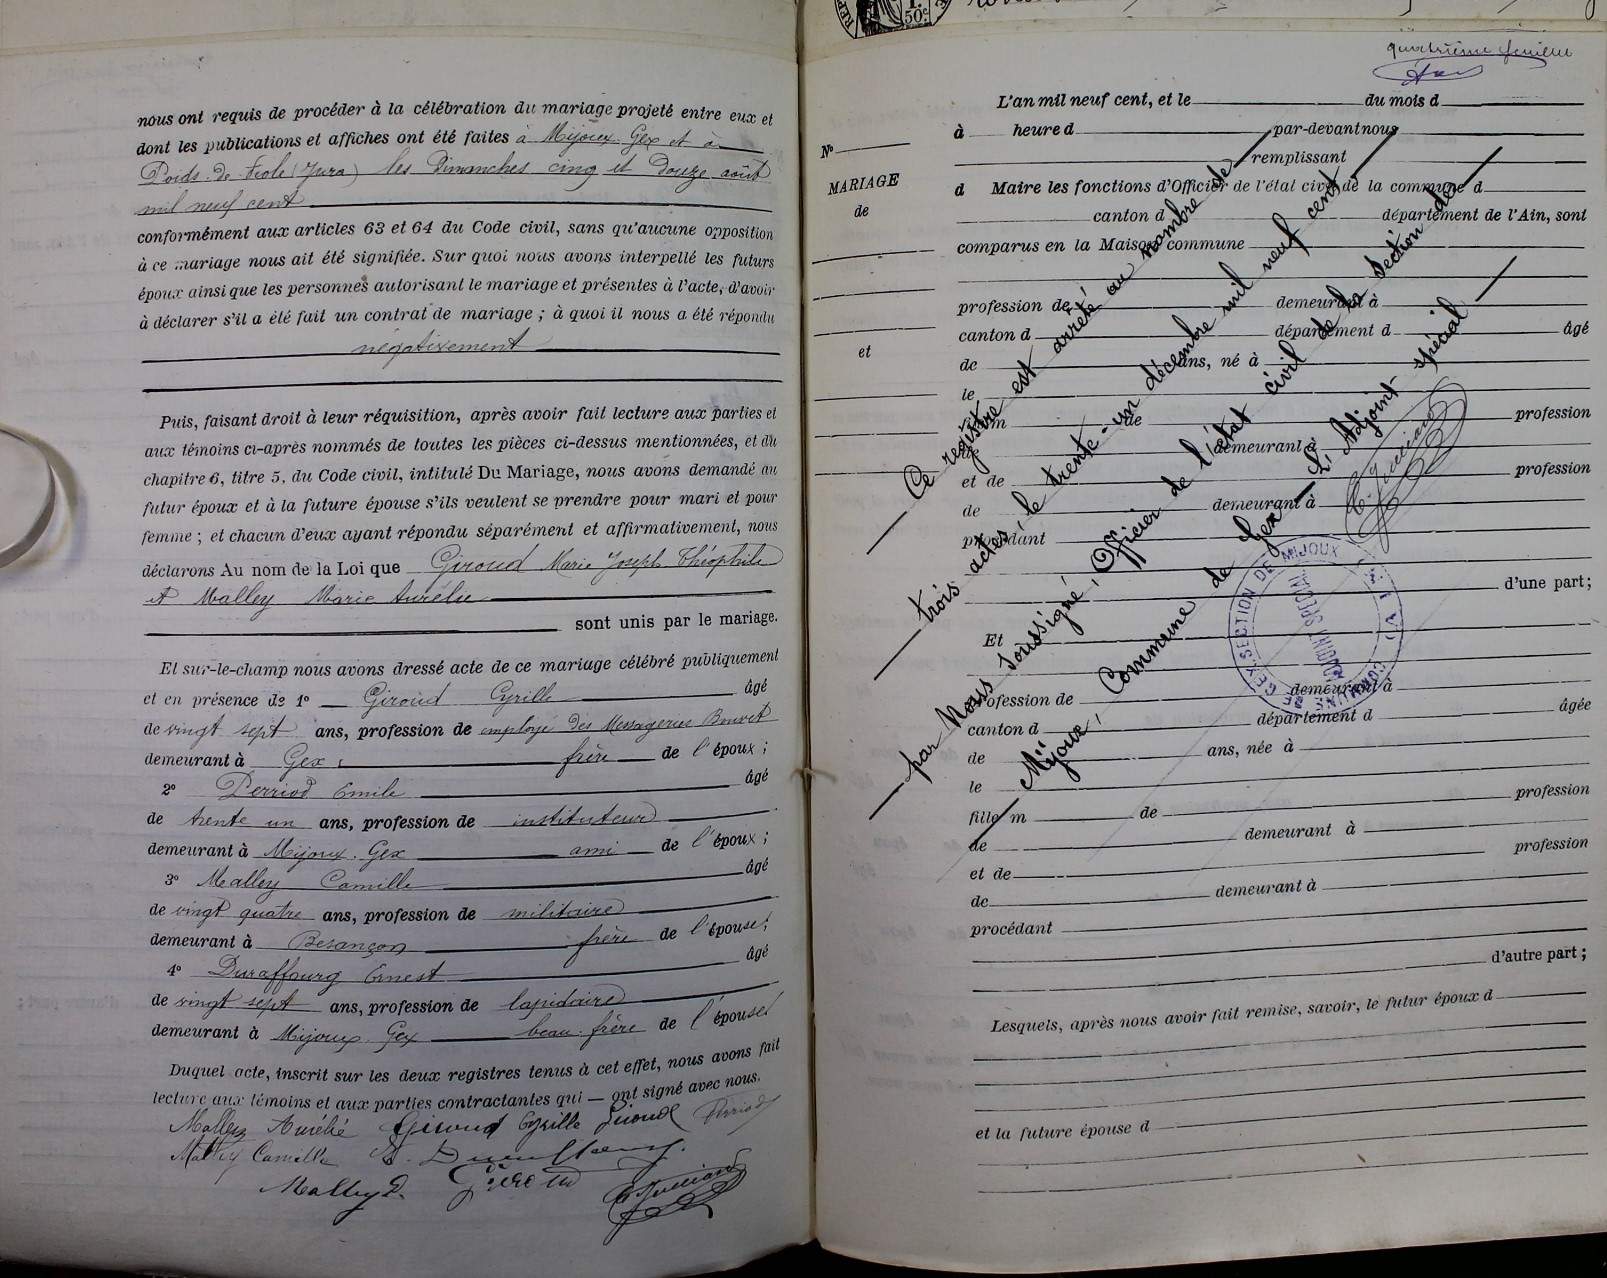 nous ont requis de procéder à la célébration du mariage projeté entre eux et
dont les publications et affiches ont été faites à Mijoux-Gex et à
Poids-de-Fiole (Jura) les Dimanches cinq et douze août
mil neuf cent
conformément aux articles 63 et 64 du Code civil, sans qu'aucune opposition
à ce mariage nous ait été signifiée. Sur quoi nous avons interpellé les futurs
époux ainsi que les personnes autorisant le mariage et présentes à l'acte, d'avoir
à déclarer s'il a été fait un contrat de mariage ; à quoi il nous a été répondu
négativement
Puis, faisant droit à leur réquisition, après avoir fait lecture aux parties et
aux témoins ci-après nommés de toutes les pièces ci-dessus mentionnées, et du
chapitre 6, titre 5, du Code civil, intitulé Du Mariage, nous avons demandé au
futur époux et à la future épouse s'ils veulent se prendre pour mari et pour
femme ; et chacun d'eux ayant répondu séparément et affirmativement, nous
déclarons Au nom de la Loi que Giroud Marie Joseph Théophile
et Malley Marie Aurélie
sont unis par le mariage.
Et sur-le-champ nous avons dressé acte de ce mariage célébré publiquement
et en présence de 1° Giroud Cyrille âgé
de vingt sept ans, profession de employé des Messageries Bouvet
demeurant à Gex frère de l'époux ;
2° Perriod Emile âgé
de trente un ans, profession de instituteur
demeurant à Mijoux-Gex ami de l'époux ;
3° Malley Camille âgé
de vingt quatre ans, profession de militaire
demeurant à Besançon frère de l'épouse ;
4° Duraffourg Ernest âgé
de vingt sept ans, profession de lapidaire
demeurant à Mijoux-Gex beau-frère de l'épouse
Duquel acte, inscrit sur les deux registres tenus à cet effet, nous avons fait
lecture aux témoins et aux parties contractantes qui — ont signé avec nous.
Malley Aurélie Giroud Cyrille Giroud Perriod
Malley Camille E. Duraffourg
Malley Giroud
50c
quatrième feuillet
L'an mil neuf cent, et le du mois d
à heure d par-devant nous
remplissant
d Maire les fonctions d'Officier de l'état civil de la commune d
canton d département de l'Ain, sont
comparus en la Maison commune
profession de demeurant à
canton d département d âgé
de ans, né à
le
m de profession
de demeurant à
et de profession
de demeurant à
procédant
d'une part ;
Et
profession de demeurant à
canton d département d âgée
de ans, née à
le
fille m de profession
de demeurant à
et de profession
de demeurant à
procédant
d'autre part ;
Lesquels, après nous avoir fait remise, savoir, le futur époux d
et la future épouse d
N°
MARIAGE
de
et
Ce registre est arrêté au nombre de
trois actes, le trente-un décembre mil neuf cent
par Nous soussigné, Officier de l'état civil de la section de
Mijoux, Commune de Gex — L'Adjoint spécial
COMMUNE DE GEX. SECTION DE MIJOUX
(AIN)
ADJOINT SPÉCIAL